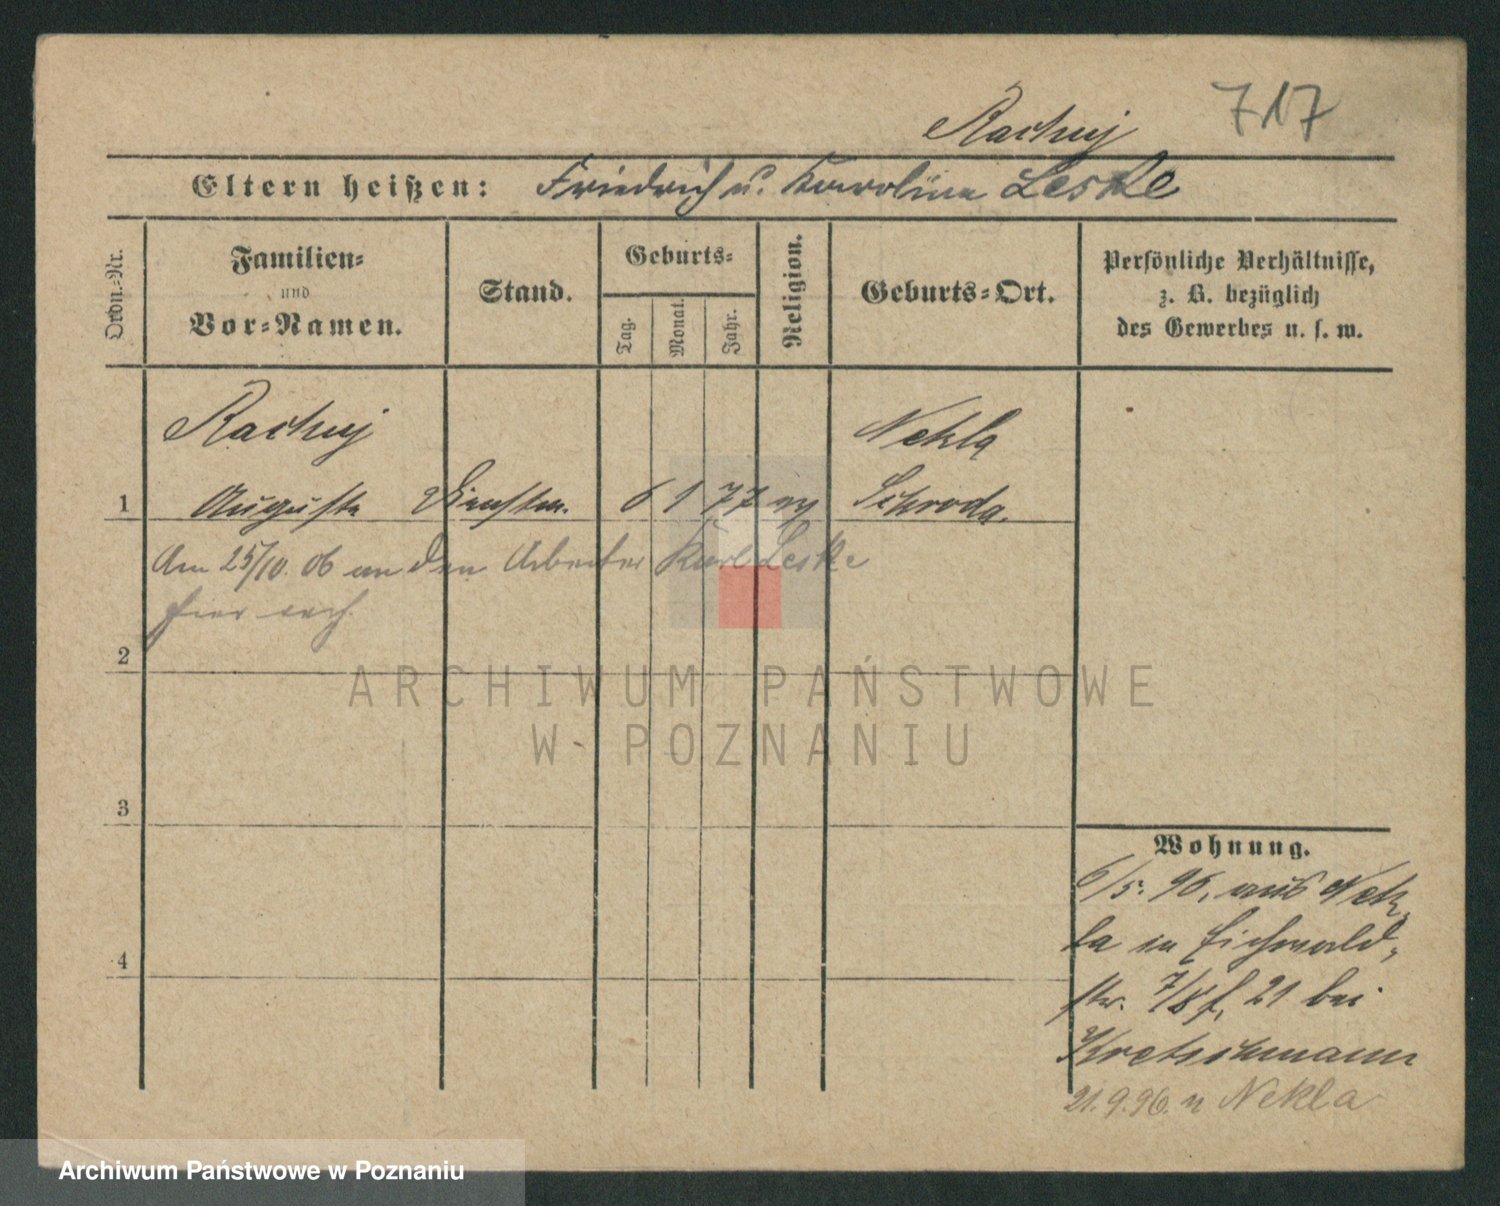 717
Rachuj
Eltern heißen: Friedrich u. Karolina Leske
Ordn.-Nr.
Familien-
und
Vor-Namen.
Stand.
Geburts-
Tag.
Monat.
Jahr.
Religion.
Geburts-Ort.
Persönliche Verhältnisse,
z. B. bezüglich
des Gewerbes u. s. w.
Rachuj Nekla
1 Auguste Dienstm. 6 1 77 Schroda.
Am 25/10. 06 an den Arbeiter Karl Leske
hier
2
ARCHIWUM PAŃSTWOWE
W POZNANIU
3
4
Wohnung.
6/5. 96. aus Nek-
la in Eichwald-
str. 21 bei
Kretschmann
21.9.96. n Nekla
Archiwum Państwowe w Poznaniu